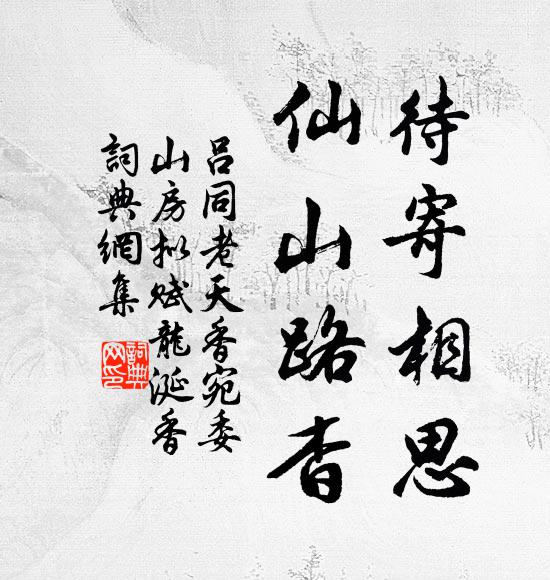 待寄相思
仙山路杳
吕同老天香宛委
山房拟赋龍涎香
詞典網集
詞典
网印